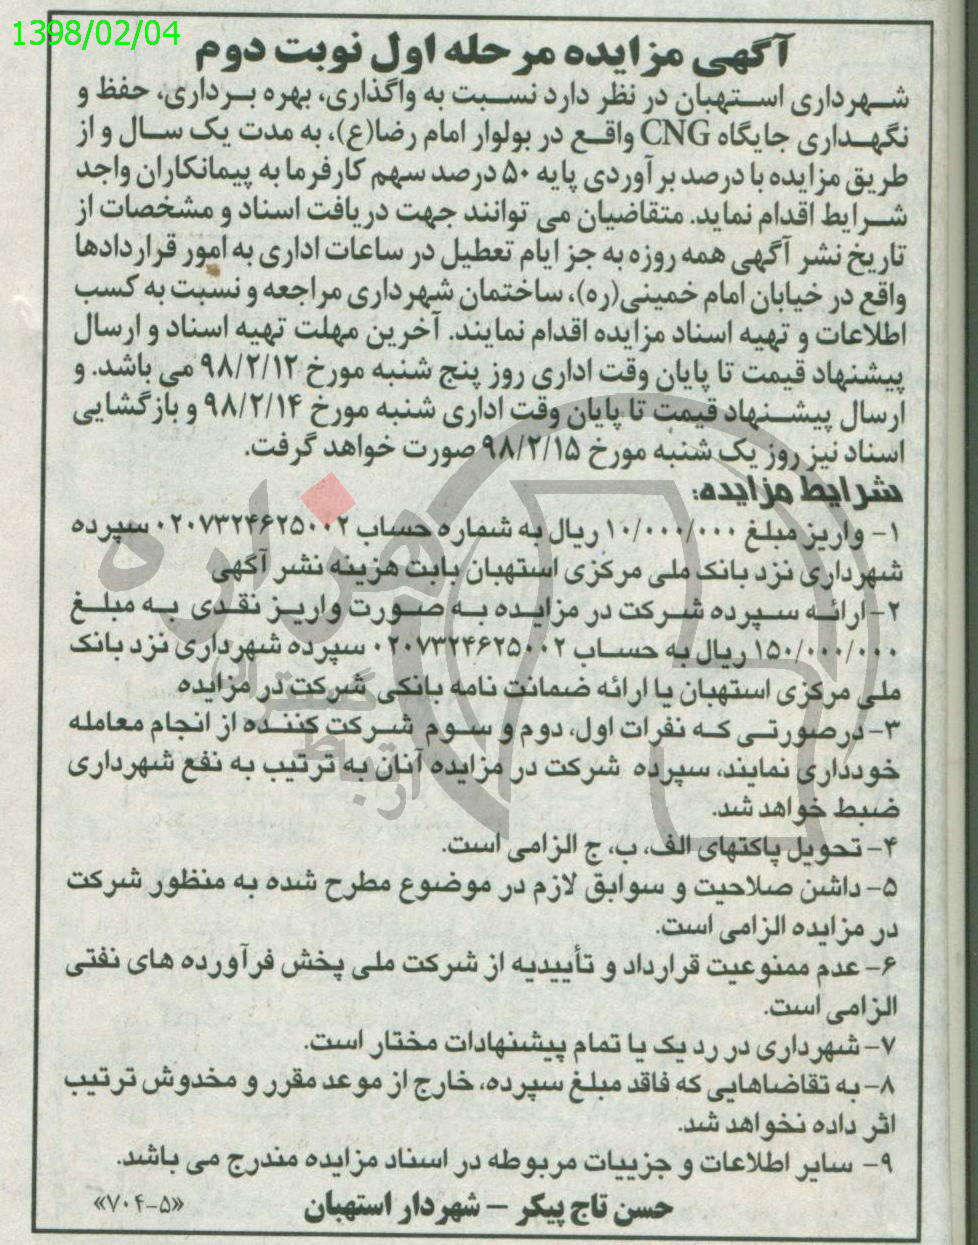 1398/02/04
آگهی مزایده مرحله اول نوبت دوم
شهرداری استهبان در نظر دارد نسبت به واگذاری، بهره برداری، حفظ و
نگهداری جایگاه CNG واقع در بولوار امام رضا(ع)، به مدت یک سال و از
طریق مزایده با درصد برآوردی پایه ۵۰ درصد سهم کارفرما به پیمانکاران واجد
شرایط اقدام نماید. متقاضیان می توانند جهت دریافت اسناد و مشخصات از
تاریخ نشر آگهی همه روزه به جز ایام تعطیل در ساعات اداری به امور قراردادها
واقع در خیابان امام خمینی(ره)، ساختمان شهرداری مراجعه و نسبت به کسب
اطلاعات و تهیه اسناد مزایده اقدام نمایند. آخرین مهلت تهیه اسناد و ارسال
پیشنهاد قیمت تا پایان وقت اداری روز پنج شنبه مورخ ۹۸/۲/۱۲ می باشد. و
ارسال پیشنهاد قیمت تا پایان وقت اداری شنبه مورخ ۹۸/۲/۱۴ و بازگشایی
اسناد نیز روز یک شنبه مورخ ۹۸/۲/۱۵ صورت خواهد گرفت.
شرایط مزایده:
۱- واریز مبلغ ۱۰/۰۰۰/۰۰۰ ریال به شماره حساب ۰۲۰۷۳۲۴۶۲۵۰۰۲ سپرده
شهرداری نزد بانک ملی مرکزی استهبان بابت هزینه نشر آگهی
۲- ارائه سپرده شرکت در مزایده به صورت واریز نقدی به مبلغ
۱۵۰/۰۰۰/۰۰۰ ریال به حساب ۰۲۰۷۳۲۴۶۲۵۰۰۲ سپرده شهرداری نزد بانک
ملی مرکزی استهبان یا ارائه ضمانت نامه بانکی شرکت در مزایده
۳- درصورتی که نفرات اول، دوم و سوم شرکت کننده از انجام معامله
خودداری نمایند، سپرده شرکت در مزایده آنان به ترتیب به نفع شهرداری
ضبط خواهد شد.
۴- تحویل پاکتهای الف، ب، ج الزامی است.
۵- داشن صلاحیت و سوابق لازم در موضوع مطرح شده به منظور شرکت
در مزایده الزامی است.
۶- عدم ممنوعیت قرارداد و تأییدیه از شرکت ملی پخش فرآورده های نفتی
الزامی است.
۷- شهرداری در رد یک یا تمام پیشنهادات مختار است.
۸- به تقاضاهایی که فاقد مبلغ سپرده، خارج از موعد مقرر و مخدوش ترتیب
اثر داده نخواهد شد.
۹- سایر اطلاعات و جزییات مربوطه در اسناد مزایده مندرج می باشد.
حسن تاج پیکر – شهردار استهبان
«۷۰۴-۵»